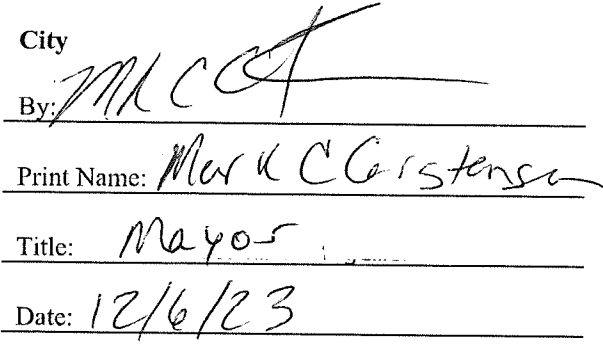 City
By:
Print Name: Mark C Carstensen
Title: Mayor
Date: 12/6/23